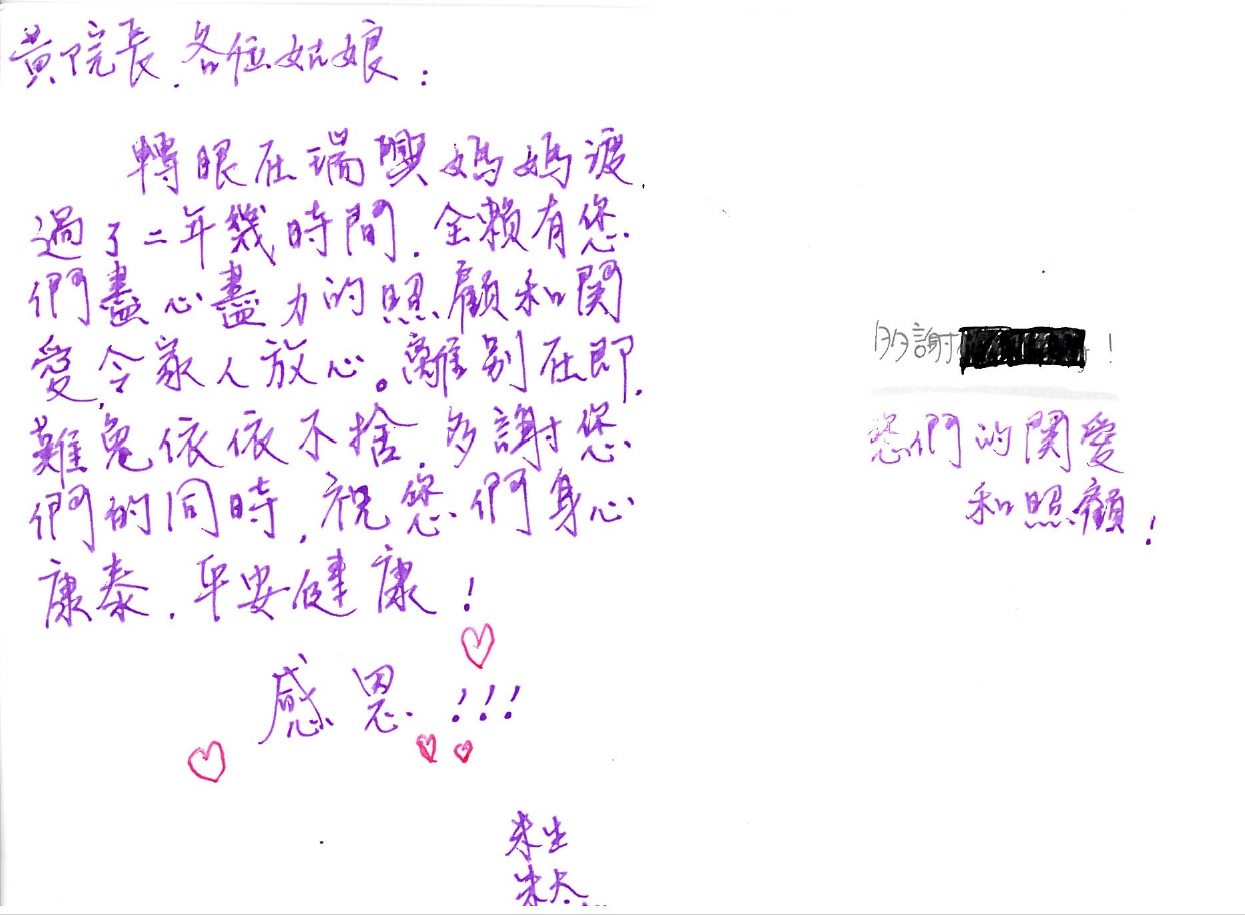 黃院長.各位姑娘：
轉眼在瑞興媽媽渡
過了二年幾時間.全賴有您
們盡心盡力的照顧和関
愛,令家人放心。離別在即,
難免依依不捨,多謝您
們的同時,祝您們身心
康泰.平安健康!
感恩!!!
朱生
朱太
多謝!
您們的関愛
和照顧!